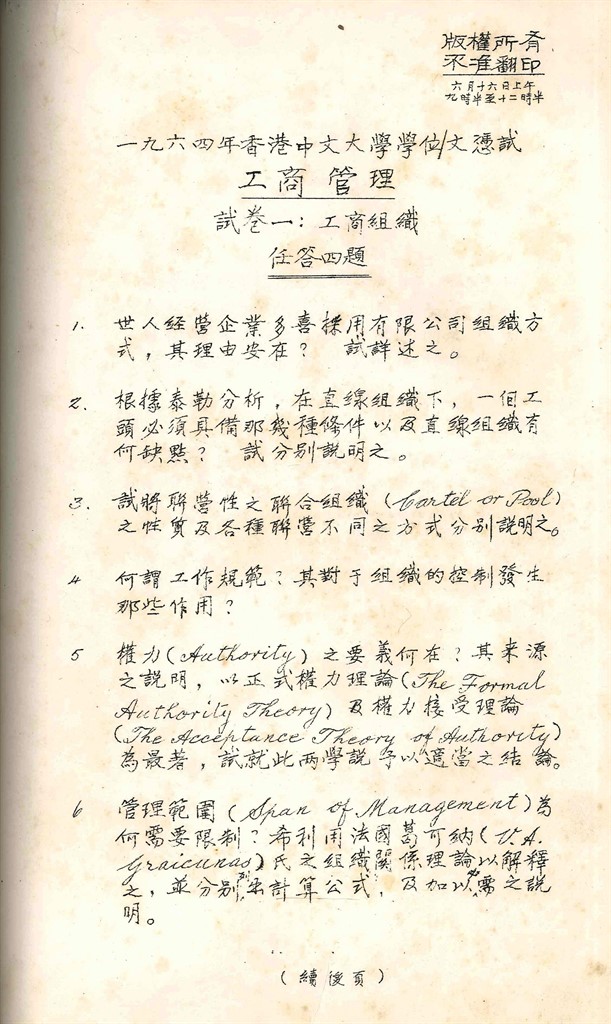 版權所有
不准翻印
六月十六日上午
九時半至十二時半
一九六四年香港中文大學學位/文憑試
工商管理
試卷一：工商組織
任答四題
1. 世人經營企業多喜採用有限公司組織方
式，其理由安在？ 試詳述之。
2. 根據泰勒分析，在直線組織下，一個工
頭必須具備那幾種條件以及直線組織有
何缺點？ 試分別說明之。
3. 試將聯營性之聯合組織（Cartel or Pool）
之性質及各種聯營不同之方式分別說明之。
4 何謂工作規範？其對于組織的控制發生
那些作用？
5 權力（Authority）之要義何在？其來源
之說明，以正式權力理論（The Formal
Authority Theory）及權力接受理論
（The Acceptance Theory of Authority）
為最著，試就此两學說予以適當之結論。
6 管理範圍（Span of Management）為
何需要限制？希利用法國葛可納（V. A.
Graicunas）氏之組織關係理論以解釋
之，並分別列出計算公式，及加以必需之說
明。
（續後頁）